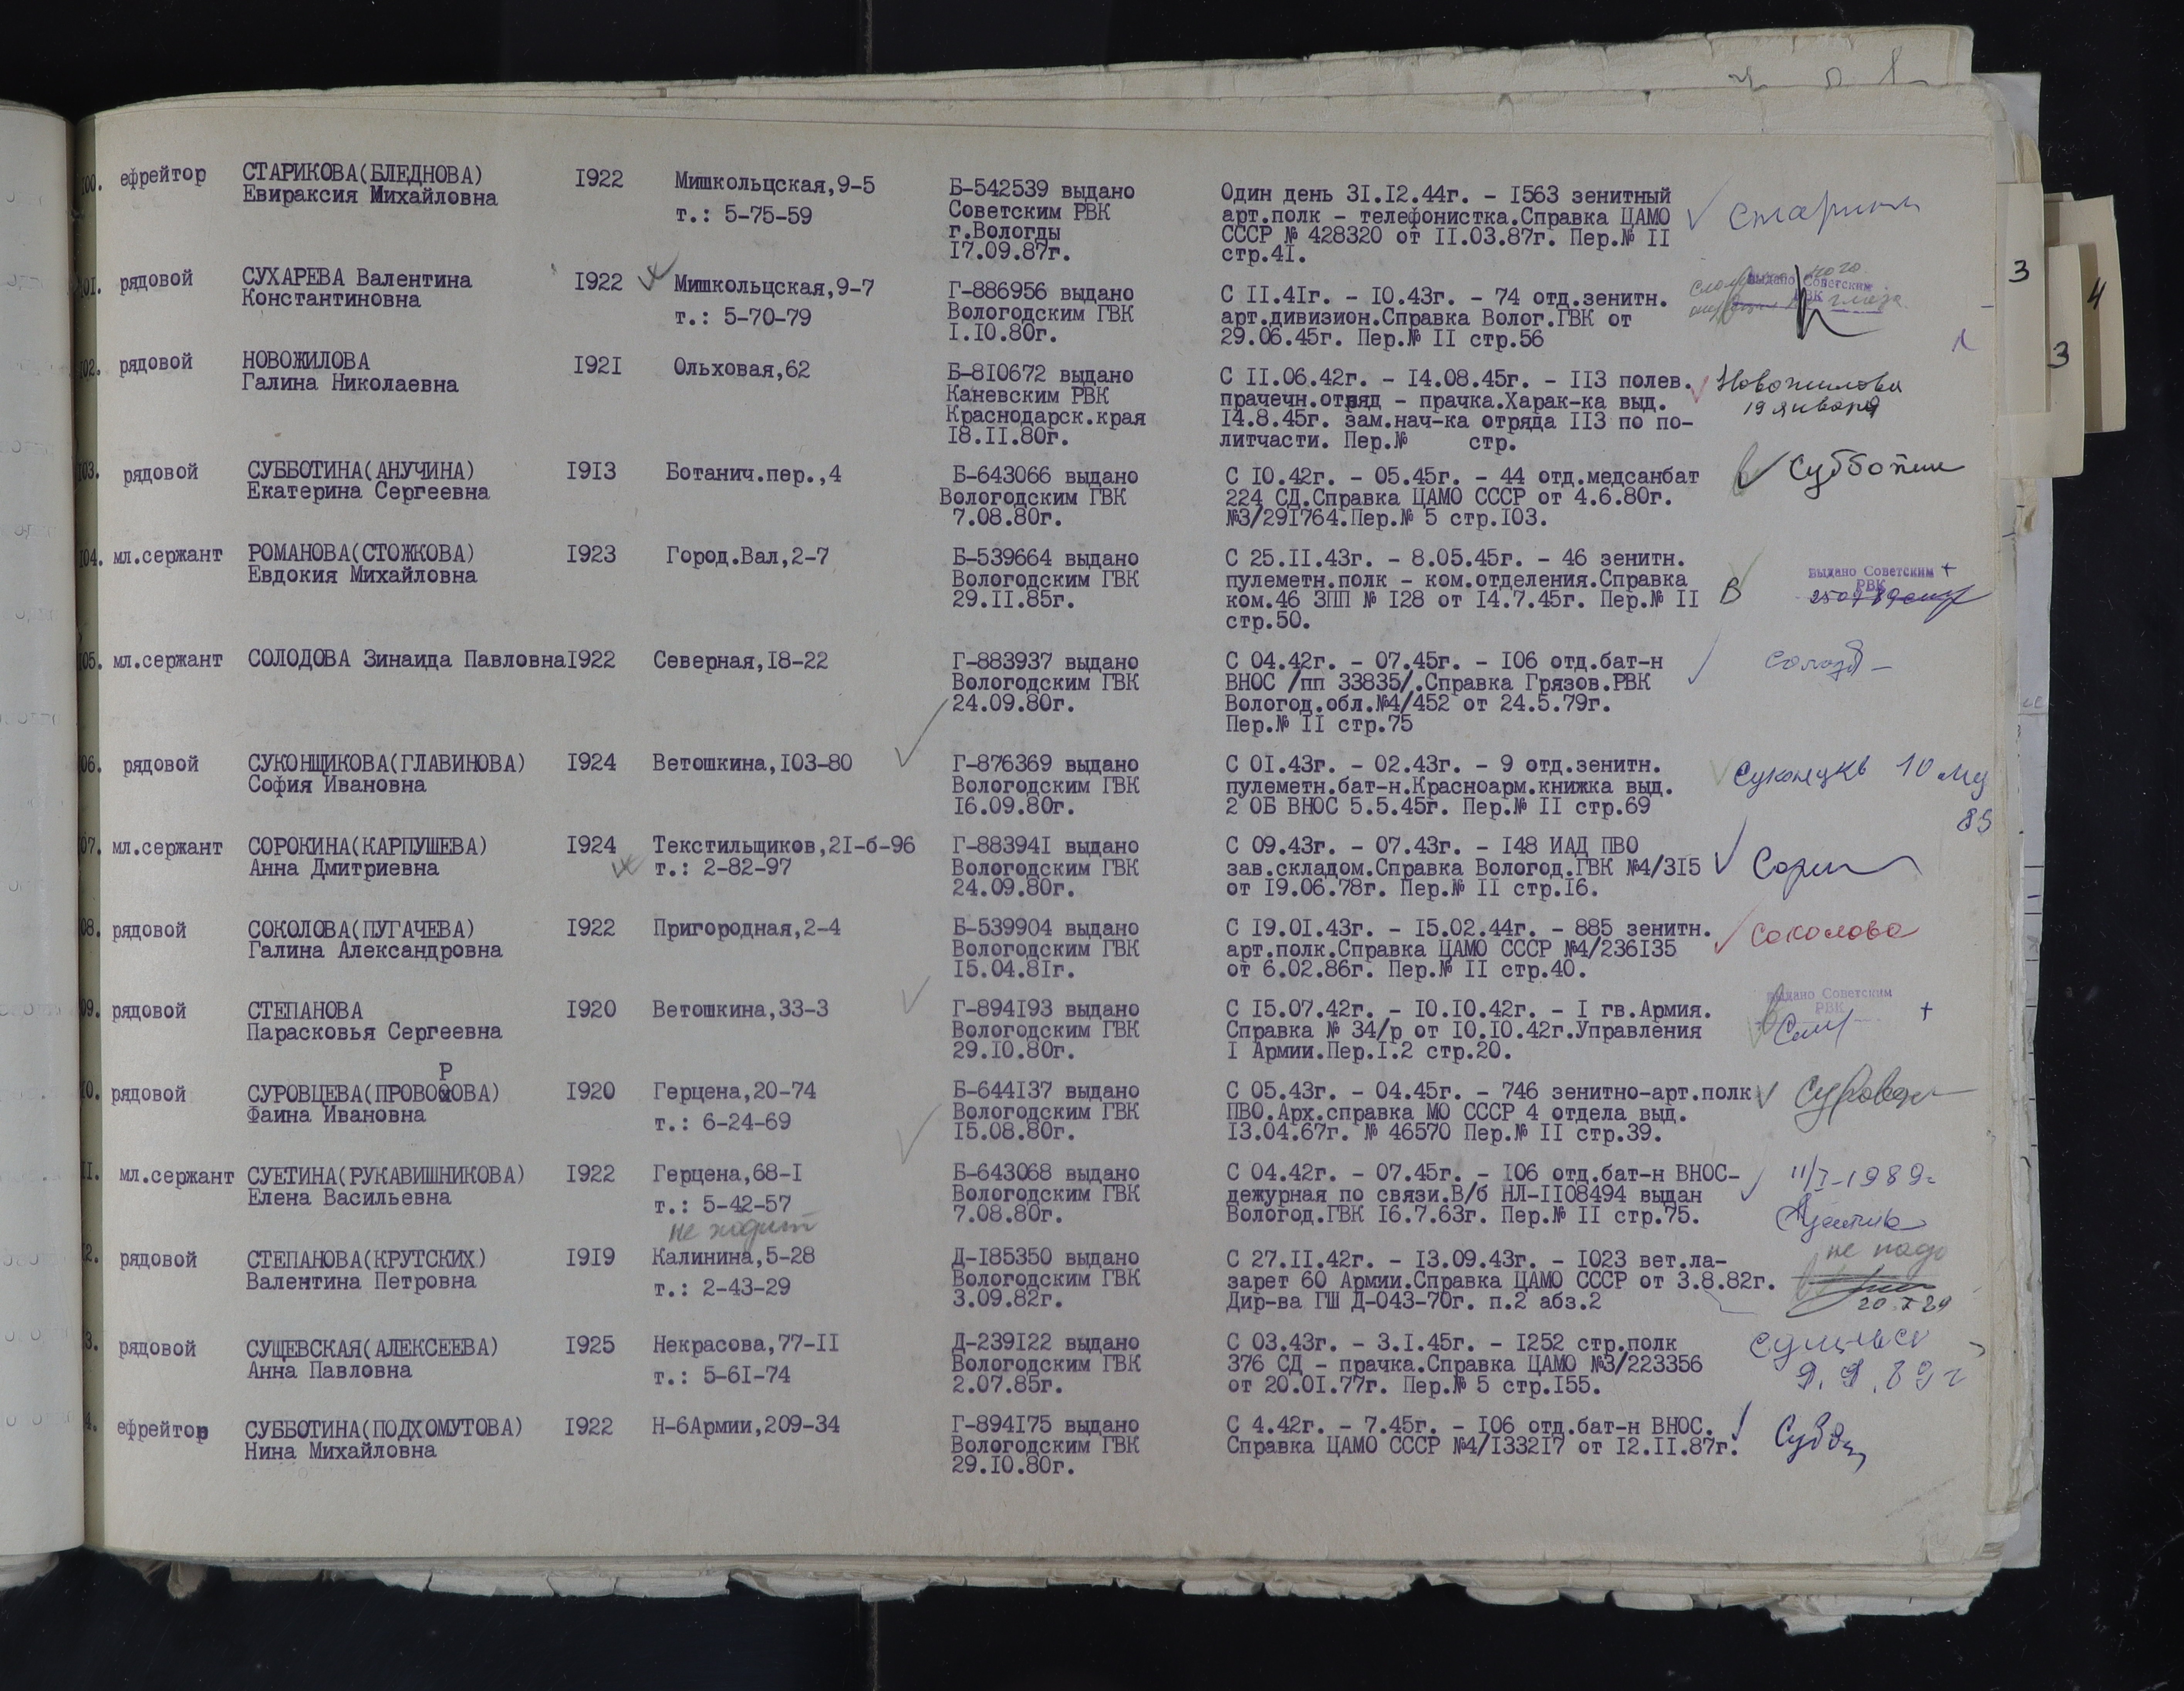 00. ефрейтор СТАРИКОВА(БЛЕДНОВА) 1922 Мишкольцская,9-5 Б-542539 выдано Один день 31.12.44г. - 1563 зенитный
Евираксия Михайловна т.: 5-75-59 Советским РВК арт.полк - телефонистка.Справка ЦАМО
г.Вологды СССР № 428320 от 11.03.87г. Пер.№ 11
17.09.87г. стр.41.
01. рядовой СУХАРЕВА Валентина 1922 Мишкольцская,9-7 Г-886956 выдано С 11.41г. - 10.43г. - 74 отд.зенитн. выдано Советским
Константиновна т.: 5-70-79 Вологодским ГВК арт.дивизион.Справка Волог.ГВК от РВК
1.10.80г. 29.06.45г. Пер.№ 11 стр.56
02. рядовой НОВОЖИЛОВА 1921 Ольховая,62 Б-810672 выдано С 11.06.42г. - 14.08.45г. - 113 полев. Новожилова
Галина Николаевна Каневским РВК прачечн.отряд - прачка.Харак-ка выд. 19 января
Краснодарск.края 14.8.45г. зам.нач-ка отряда 113 по по-
18.11.80г. литчасти. Пер.№ стр.
03. рядовой СУББОТИНА(АНУЧИНА) 1913 Ботанич.пер.,4 Б-643066 выдано С 10.42г. - 05.45г. - 44 отд.медсанбат
Екатерина Сергеевна Вологодским ГВК 224 СД.Справка ЦАМО СССР от 4.6.80г.
7.08.80г. №3/291764.Пер.№ 5 стр.103.
04. мл.сержант РОМАНОВА(СТОЖКОВА) 1923 Город.Вал,2-7 Б-539664 выдано С 25.11.43г. - 8.05.45г. - 46 зенитн. выдано Советским +
Евдокия Михайловна Вологодским ГВК пулеметн.полк - ком.отделения.Справка РВК
29.11.85г. ком.46 ЗПП № 128 от 14.7.45г. Пер.№ 11 В
стр.50.
05. мл.сержант СОЛОДОВА Зинаида Павловна1922 Северная,18-22 Г-883937 выдано С 04.42г. - 07.45г. - 106 отд.бат-н
Вологодским ГВК ВНОС /пп 33835/.Справка Грязов.РВК
24.09.80г. Вологод.обл.№4/452 от 24.5.79г.
Пер.№ 11 стр.75
06. рядовой СУКОНЩИКОВА(ГЛАВИНОВА) 1924 Ветошкина,103-80 Г-876369 выдано С 01.43г. - 02.43г. - 9 отд.зенитн.
София Ивановна Вологодским ГВК пулеметн.бат-н.Красноарм.книжка выд.
16.09.80г. 2 ОБ ВНОС 5.5.45г. Пер.№ 11 стр.69
89
07. мл.сержант СОРОКИНА(КАРПУШЕВА) 1924 Текстильщиков,21-б-96 Г-883941 выдано С 09.43г. - 07.43г. - 148 ИАД ПВО
Анна Дмитриевна т.: 2-82-97 Вологодским ГВК зав.складом.Справка Вологод.ГВК №4/315
24.09.80г. от 19.06.78г. Пер.№ 11 стр.16.
08. рядовой СОКОЛОВА(ПУГАЧЕВА) 1922 Пригородная,2-4 Б-539904 выдано С 19.01.43г. - 15.02.44г. - 885 зенитн. Соколова
Галина Александровна Вологодским ГВК арт.полк.Справка ЦАМО СССР №4/236135
15.04.81г. от 6.02.86г. Пер.№ 11 стр.40.
09. рядовой СТЕПАНОВА 1920 Ветошкина,33-3 Г-894193 выдано С 15.07.42г. - 10.10.42г. - 1 гв.Армия. выдано Советским
Парасковья Сергеевна Вологодским ГВК Справка № 34/р от 10.10.42г.Управления РВК +
29.10.80г. 1 Армии.Пер.1.2 стр.20.
Р
10. рядовой СУРОВЦЕВА(ПРОВОООВА) 1920 Герцена,20-74 Б-644137 выдано С 05.43г. - 04.45г. - 746 зенитно-арт.полк
Фаина Ивановна т.: 6-24-69 Вологодским ГВК ПВО.Арх.справка МО СССР 4 отдела выд.
15.08.80г. 13.04.67г. № 46570 Пер.№ 11 стр.39.
11. мл.сержант СУЕТИНА(РУКАВИШНИКОВА) 1922 Герцена,68-1 Б-643068 выдано С 04.42г. - 07.45г. - 106 отд.бат-н ВНОС- 11/I-1989г
Елена Васильевна т.: 5-42-57 Вологодским ГВК дежурная по связи.В/б НЛ-1108494 выдан
7.08.80г. Вологод.ГВК 16.7.63г. Пер.№ 11 стр.75.
не ходит
12. рядовой СТЕПАНОВА(КРУТСКИХ) 1919 Калинина,5-28 Д-185350 выдано С 27.11.42г. - 13.09.43г. - 1023 вет.ла- не надо
Валентина Петровна т.: 2-43-29 Вологодским ГВК зарет 60 Армии.Справка ЦАМО СССР от 3.8.82г.
3.09.82г. Дир-ва ГШ Д-043-70г. п.2 абз.2
3. рядовой СУЩЕВСКАЯ(АЛЕКСЕЕВА) 1925 Некрасова,77-11 Д-239122 выдано С 03.43г. - 3.1.45г. - 1252 стр.полк
Анна Павловна т.: 5-61-74 Вологодским ГВК 376 СД - прачка.Справка ЦАМО №3/223356 9.9.89г
2.07.85г. от 20.01.77г. Пер.№ 5 стр.155.
4. ефрейтор СУББОТИНА(ПОДХОМУТОВА) 1922 Н-6Армии,209-34 Г-894175 выдано С 4.42г. - 7.45г. - 106 отд.бат-н ВНОС.
Нина Михайловна Вологодским ГВК Справка ЦАМО СССР №4/133217 от 12.11.87г.
29.10.80г.
3
4
3